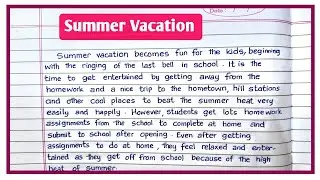 Summer Vacation
Date :
Summer vacation becomes fun for the kids, beginning
with the ringing of the last bell in school. It is the
time to get entertained by getting away from the
homework and a nice trip to the hometown, hill stations
and other cool places to beat the summer heat very
easily and happily. However, students get lots homework
assignments from the school to complete at home and
submit to school after opening. Even after getting
assignments to do at home, they feel relaxed and enter-
tained as they get off from school because of the high
heat of summer.